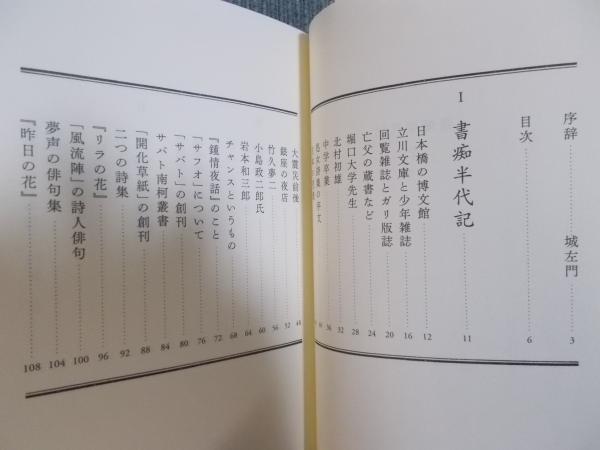 序辞……城左門……3
目次……6
I 書痴半代記……11
日本橋の博文館……12
立川文庫と少年雑誌……16
回覧雑誌とガリ版誌……20
亡父の蔵書など……24
堀口大学先生……28
北村初雄……32
中学卒業……36
大震災前後……48
銀座の夜店……52
竹久夢二……56
小島政二郎氏……60
岩本和三郎……64
チャンスというもの……68
『鍾情夜話』のこと……72
「サフオ」について……76
「サバト」の創刊……80
サバト南柯叢書……84
「開化草紙」の創刊……88
二つの詩集……92
『リラの花』……96
「風流陣」の詩人俳句……100
夢声の俳句集……104
『昨日の花』……108